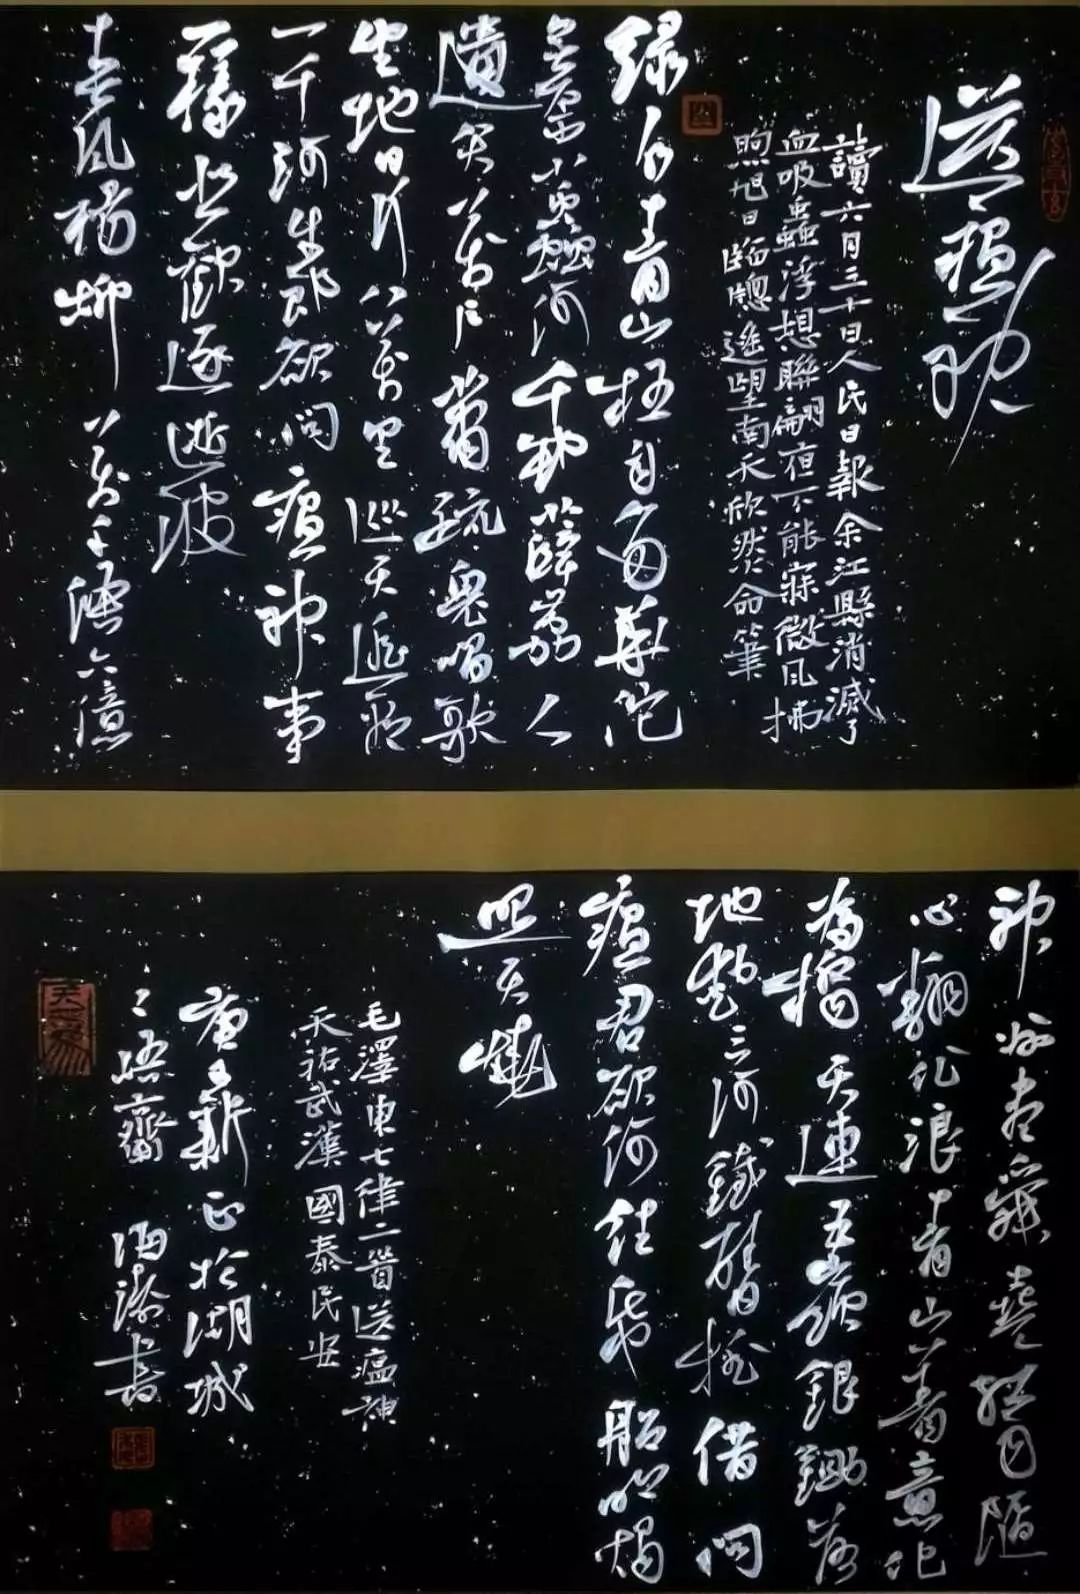 送瘟神
讀六月三十日人民日報余江縣消滅了
血吸蟲浮想聯翩夜不能寐微風拂
煦旭日臨牕遙望南天欣然命筆
綠水青山枉自多華佗
無奈小蟲何千村薜荔人
遺矢萬戶蕭疏鬼唱歌
坐地日行八萬里巡天遙看
一千河牛郎欲問瘟神事
一樣悲歡逐逝波
春風楊柳萬千條六億
神州盡舜堯紅雨隨
心翻作浪青山著意化
為橋天連五嶺銀鋤落
地動三河鐵臂搖借問
瘟君欲何往紙船明燭
照天燒
毛澤東七律二首送瘟神
天祐武漢國泰民安
庚子新正於湖城
齋書